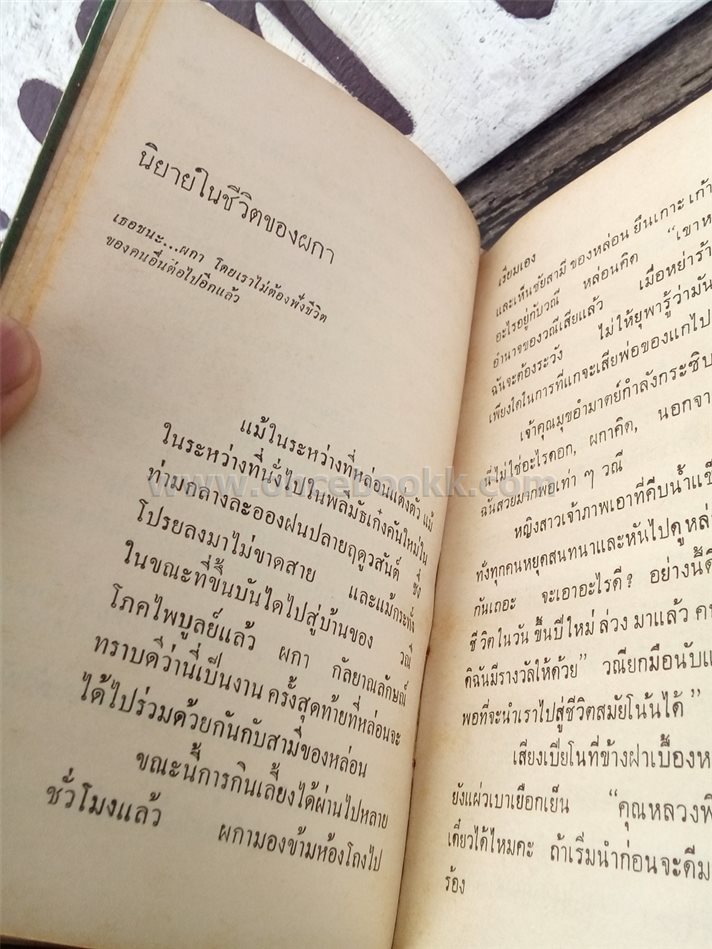 นิยายในชีวิตของผกา
เธอชนะ...ผกา โดยเราไม่ต้องพึ่งชีวิต
ของคนอื่นต่อไปอีกแล้ว
แม้ในระหว่างที่หล่อนแต่งตัว แม้
ในระหว่างที่นั่งไปในพลีมัธเก๋งคันใหม่ใน
ท่ามกลางละอองฝนปลายฤดูวสันต์ ซึ่ง
โปรยลงมาไม่ขาดสาย และแม้กระทั่ง
ในขณะที่ขึ้นบันไดไปสู่บ้านของ วณี
โภคไพบูลย์แล้ว ผกา กัลยาณลักษณ์
ทราบดีว่านี่เป็นงาน ครั้งสุดท้ายที่หล่อนจะ
ได้ไปร่วมด้วยกันกับสามีของหล่อน
ขณะนี้การกินเลี้ยงได้ผ่านไปหลาย
ชั่วโมงแล้ว ผกามองข้ามห้องโถงไป
เรียมเอง
และเห็นชัยสามี ของหล่อน ยืนเกาะ เก้า
อะไรอยู่กับวณี หล่อนคิด “เขาห
อำนาจของวณีเสียแล้ว เมื่อหย่าร้า
ฉันจะต้องระวัง ไม่ให้ยุพารู้ว่ามัน
เพียงใดในการที่แกจะเสียพ่อของแกไป
เจ้าคุณมุขอำมาตย์กำลังกระซิบ
ที่ไม่ใช่อะไรดอก, ผกาคิด, นอกจา
ฉันสวยมากพอเท่า ๆ วณี
หญิงสาวเจ้าภาพเอาที่คีบน้ำแข็
ทั้งทุกคนหยุดสนทนาและหันไปดูหล่
กันเถอะ จะเอาอะไรดี? อย่างนี้ดี
ชีวิตในวัน ขึ้นปีใหม่ ล่วง มาแล้ว ค
ดิฉันมีรางวัลให้ด้วย” วณียกมือนับแ
พอที่จะนำเราไปสู่ชีวิตสมัยโน้นได้”
เสียงเปียโนที่ข้างฝาเบื้องห
ยังแผ่วเบาเยือกเย็น “คุณหลวงพิ
เดี๋ยวได้ไหมคะ ถ้าเริ่มนำก่อนจะดีม
ร้อง
www.oncebookk.com